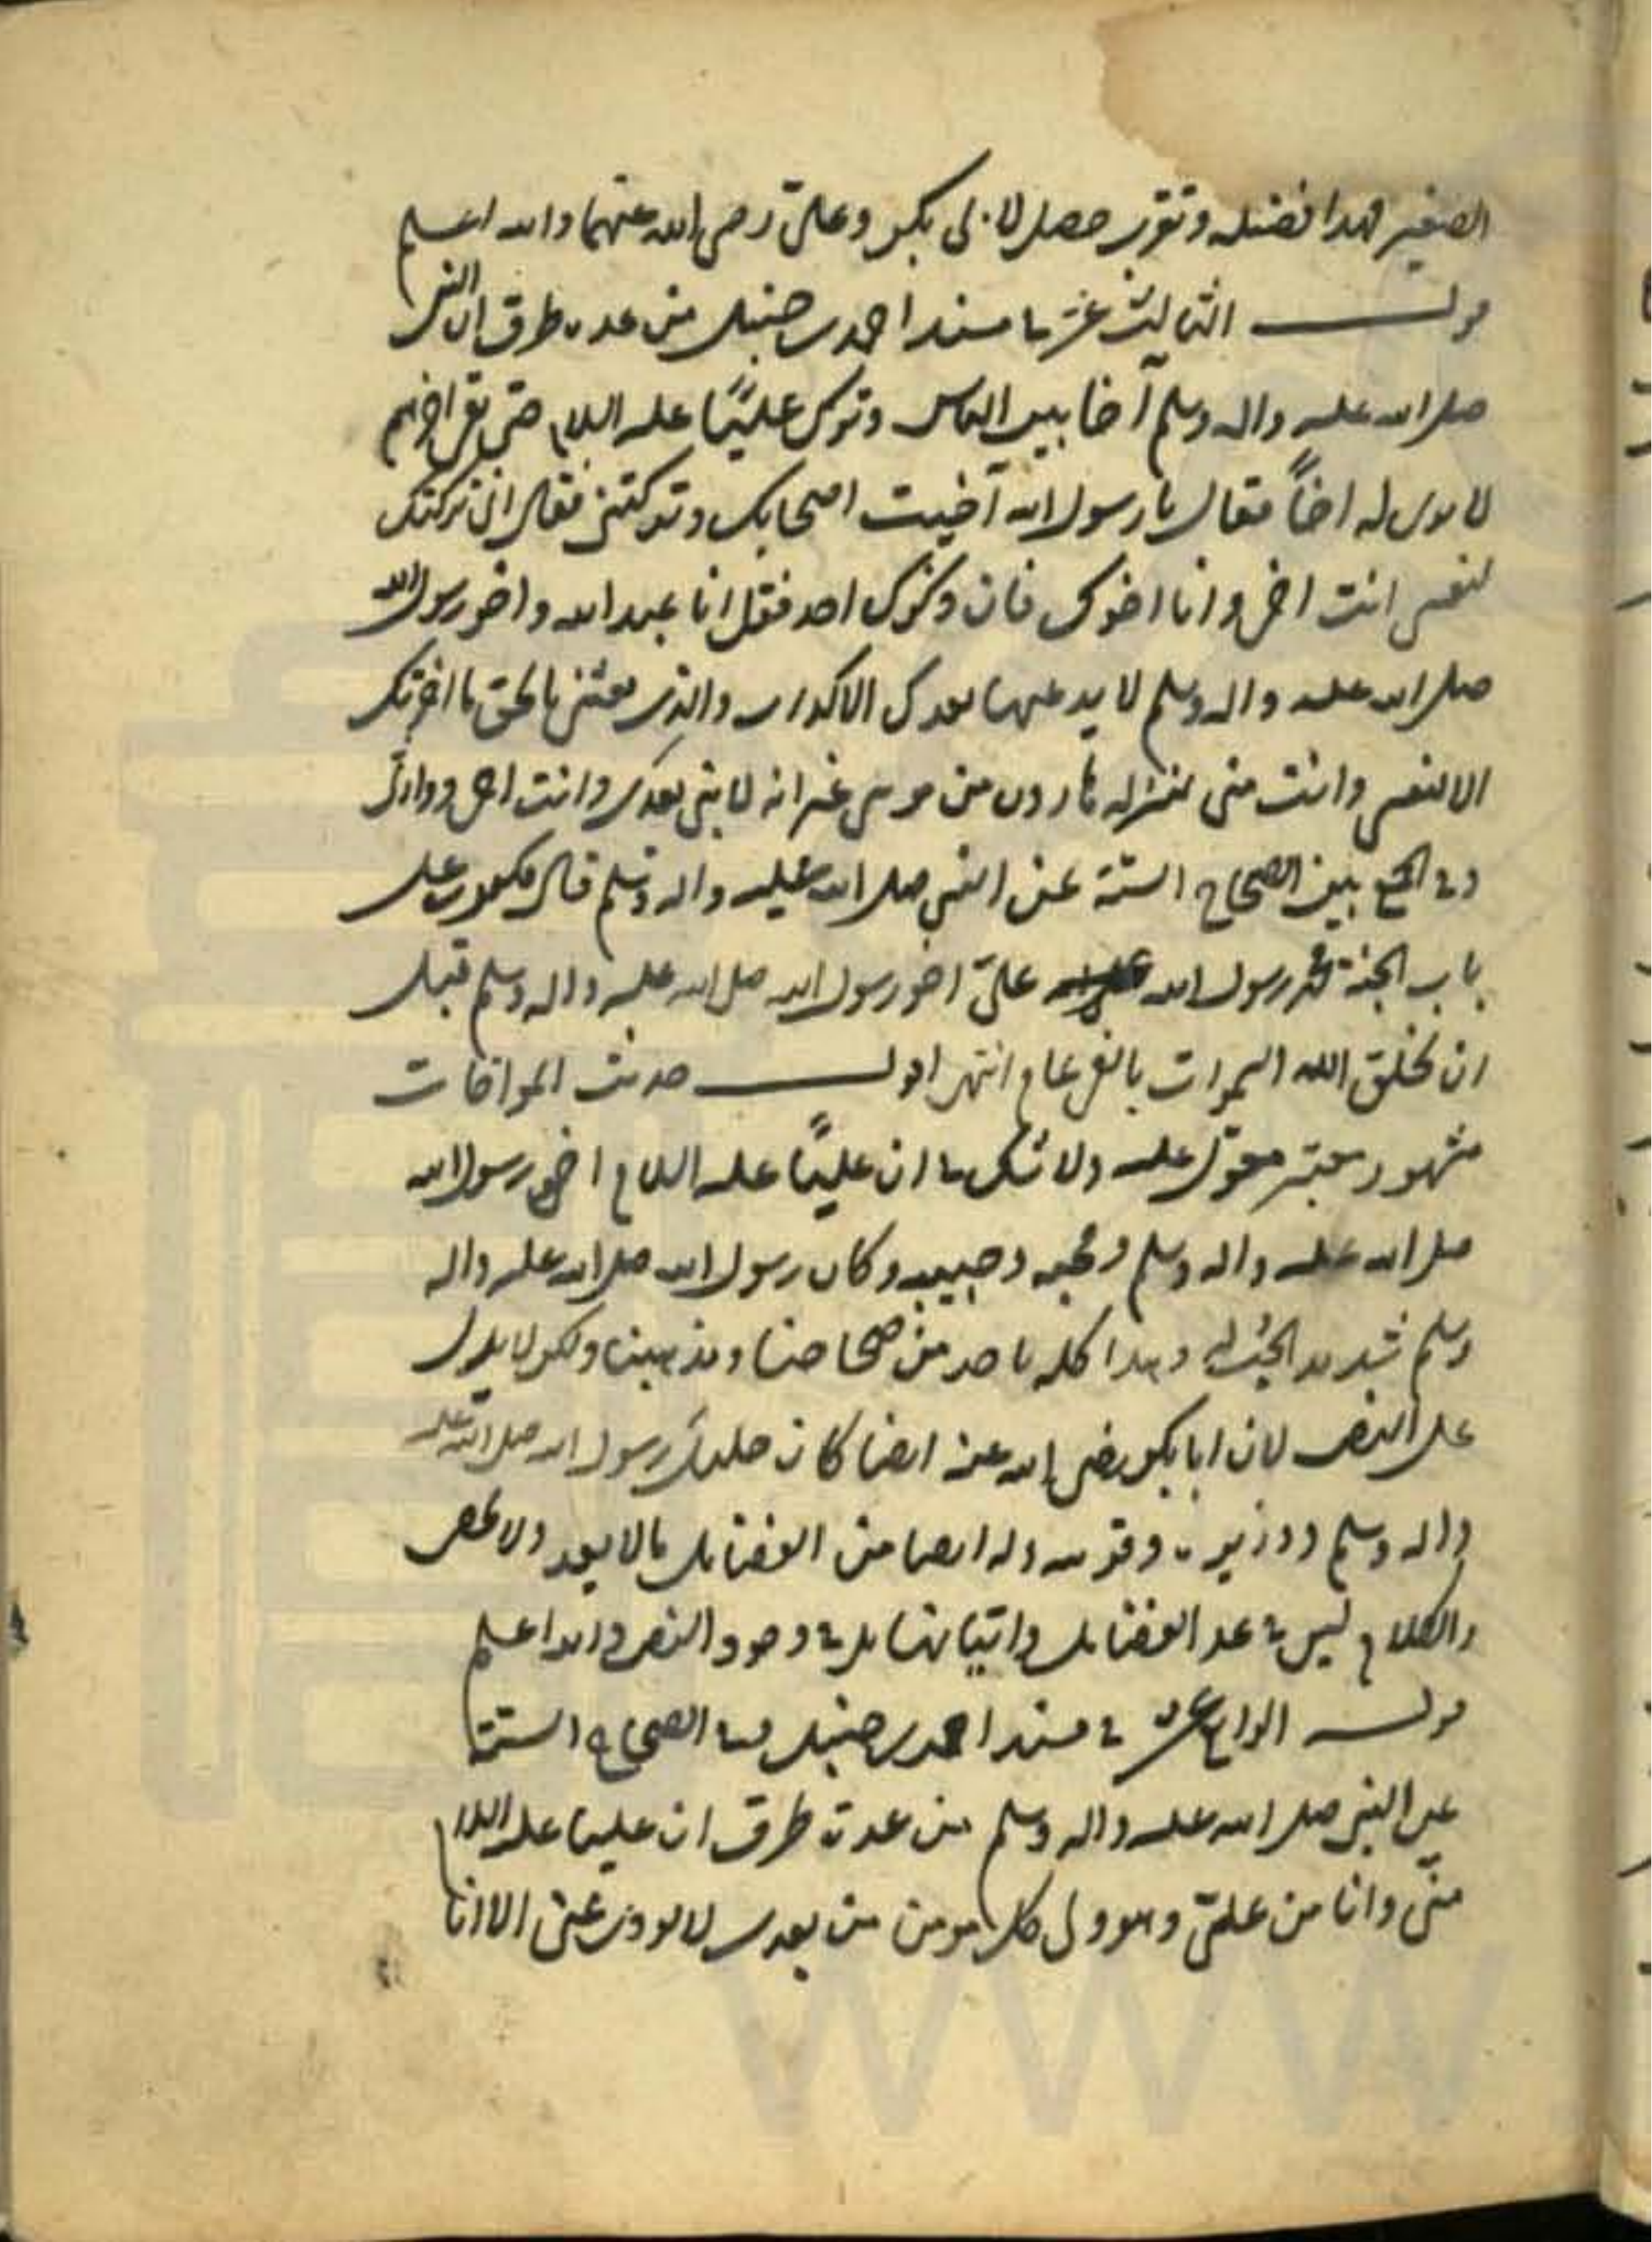 الصغير فهذا فضيلة وتقرب حصل لابى بكر وعلىّ رضى الله عنهما والله اعلم
قولـــه الثالث عشر فى مسند احمد بن حنبل من عدة طرق ان النبى
صلى الله عليه واله وسلم آخا بين الناس وترك عليّاً عليه السلام حتى بقى اخرهم
لا يرى له اخاً فقال يا رسول الله آخيت اصحابك وتركتنى فقال انى تركتك
لنفسى انت اخى وانا اخوك فان ذكرك احد فقل انا عبد الله واخو رسول الله
صلى الله عليه واله وسلم لا يدعيها بعدك الا كذاب والذى بعثنى بالحق ما اخرتك
الا لنفسى وانت منى بمنزلة هارون من موسى غير انه لا نبى بعدى وانت اخى ووارثى
وفى الجمع بين الصحاح الستة عن النبى صلى الله عليه واله وسلم قال مكتوب على
باب الجنة محمد رسول الله علىّ اخو رسول الله صلى الله عليه واله وسلم قبل
ان يخلق الله السموات بالفى عام انتهى اقولـــ حديث المواخات
مشهور معتبر معوّل عليه ولا شك فى ان عليّاً عليه السلام اخو رسول الله
صلى الله عليه واله وسلم ومحبه وحبيبه وكان رسول الله صلى الله عليه واله
وسلم شديد الحب له وهذا كله ماخوذ من صحاحنا ومذهبنا ولكن لا يدل
على النص لان ابا بكر رضى الله عنه ايضا كان خليل رسول الله صلى الله عليه
واله وسلم ووزيره وقرينه وله ايضا من الفضايل ما لا يعد ولا يحصى
والكلام ليس فى عد الفضايل واثباتها بل فى وجود النص والله اعلم
قولـــه الرابع عشر فى مسند احمد بن حنبل وفى الصحاح الستة
عن النبى صلى الله عليه واله وسلم من عدة طرق ان عليا عليه السلام
منّى وانا من علىّ وهو ولى كل مومن من بعدى لا يودى عنى الا انا